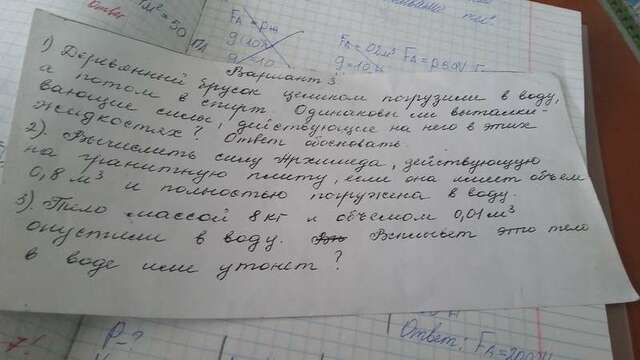 м² = 50 Па
Ответ
g = 10
Вариант 3
1) Деревянный брусок целиком погрузили в воду,
а потом в спирт. Одинаковы ли выталки-
вающие силы, действующие на него в этих
жидкостях? Ответ обосновать.
2). Вычислить силу Архимеда, действующую
на гранитную плиту, если она имеет объем
0,8 м³ и полностью погружена в воду.
3) Тело массой 8 кг и объемом 0,01 м³
опустили в воду. Всплывет это тело
в воде или утонет?
р-?
Ответ: FA =